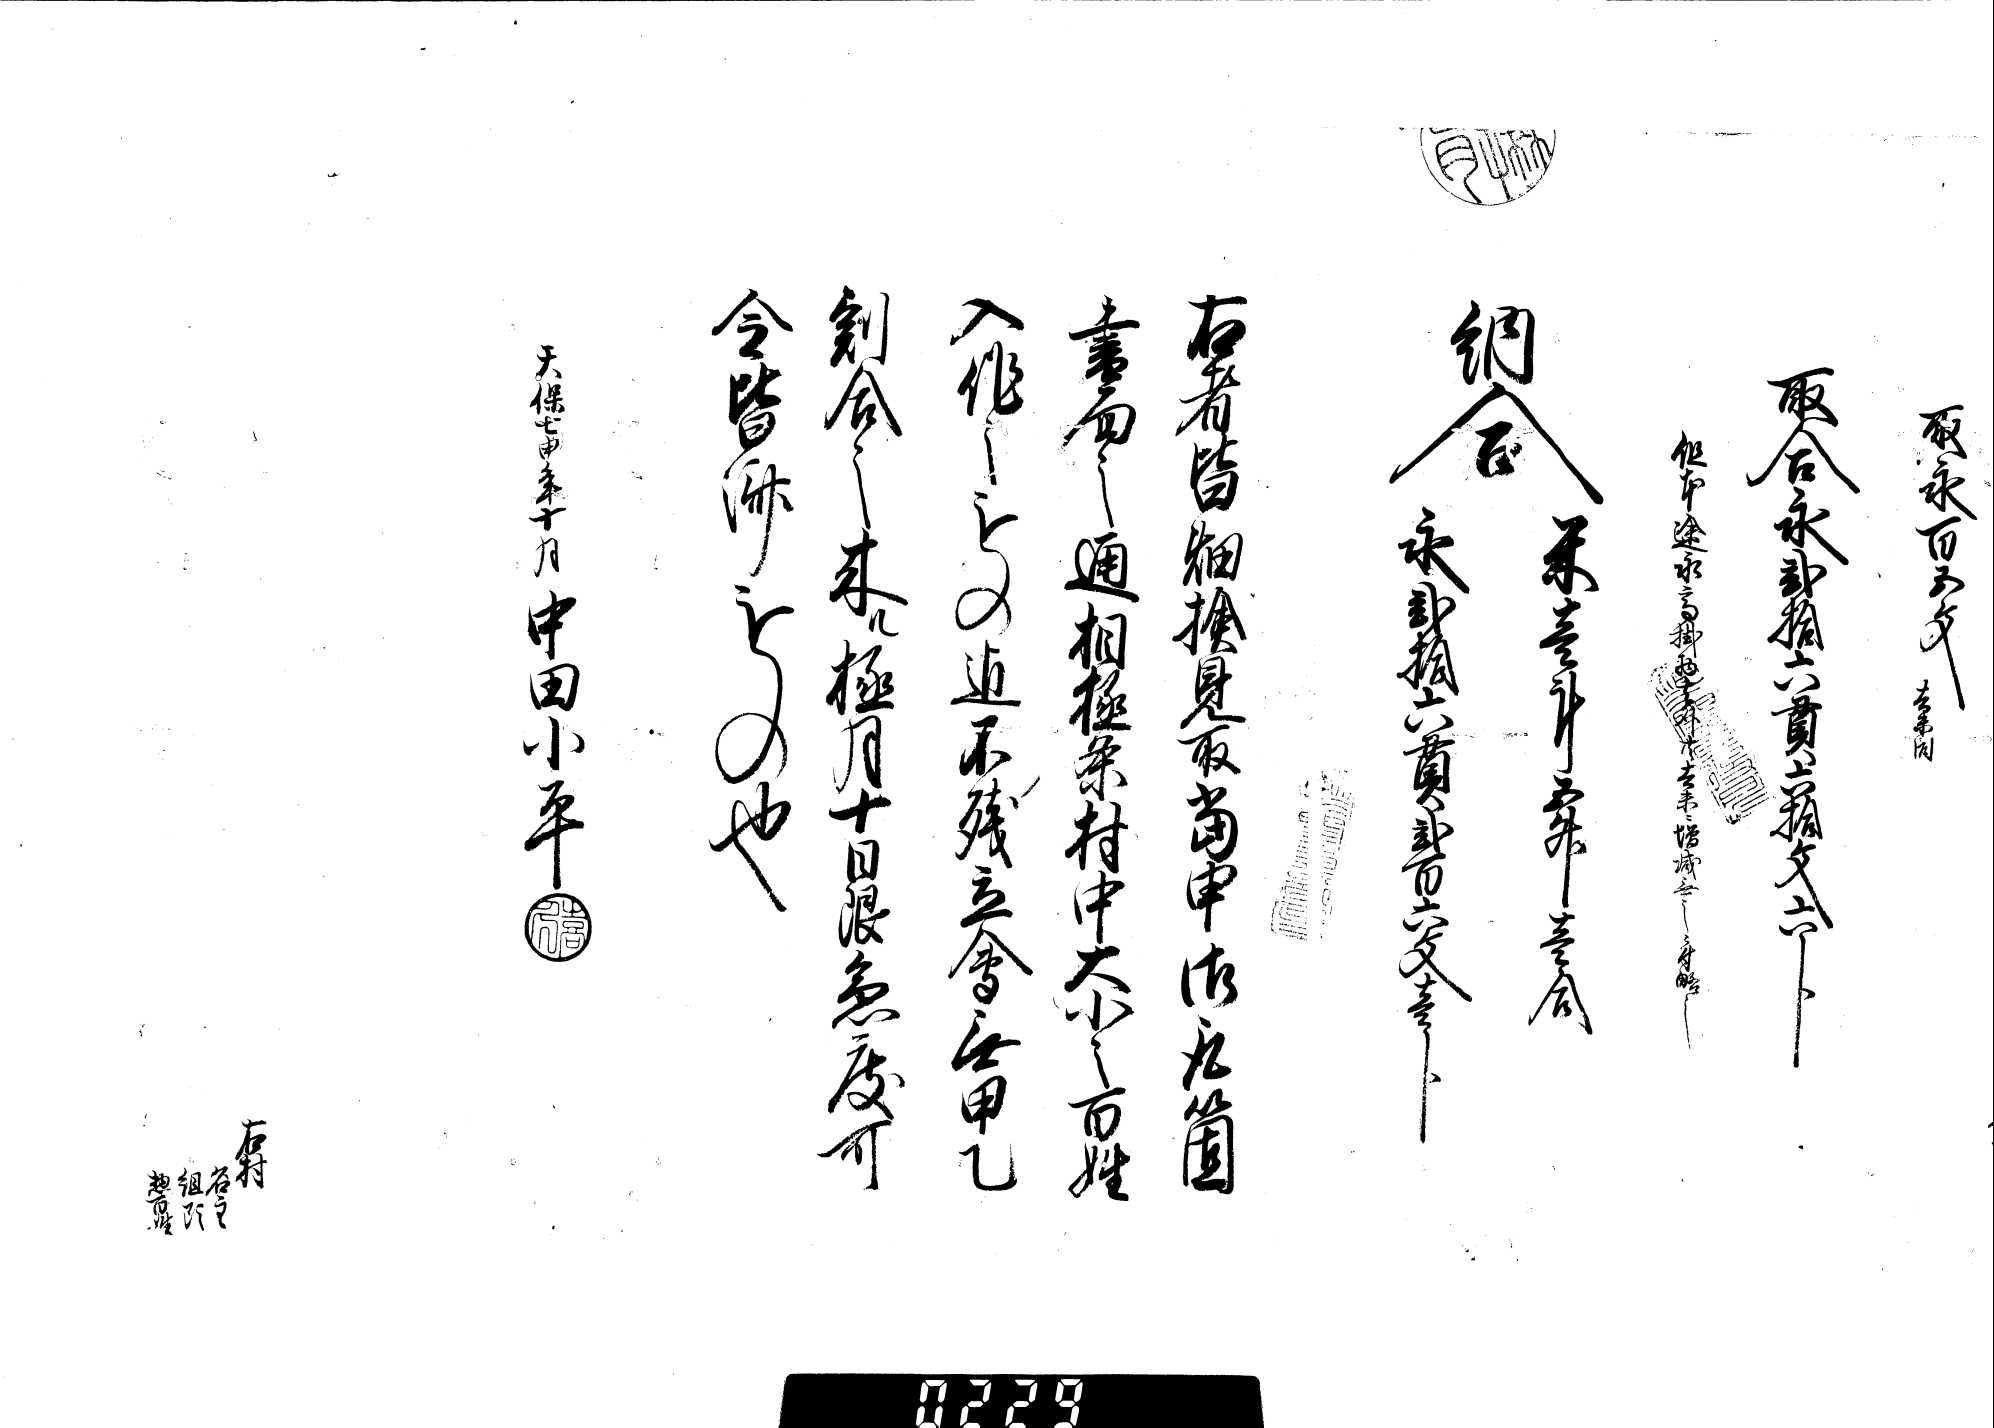 取永百五文　去未同
取合永弐拾六貫六拾文六分
但本途永高掛物其外共去未ニ増減無之ニ付略之
納合
米壱斗五升壱合
永弐拾六貫弐百六文壱分
右者皆畑検見取当申御成箇
書面之通相極条村中大小之百姓
入作之もの迄不残立会無甲乙
割合之来ル極月十日限急度可
令皆済もの也
天保七申年十月　中田小平
右村
名主
組頭
惣百姓
0229